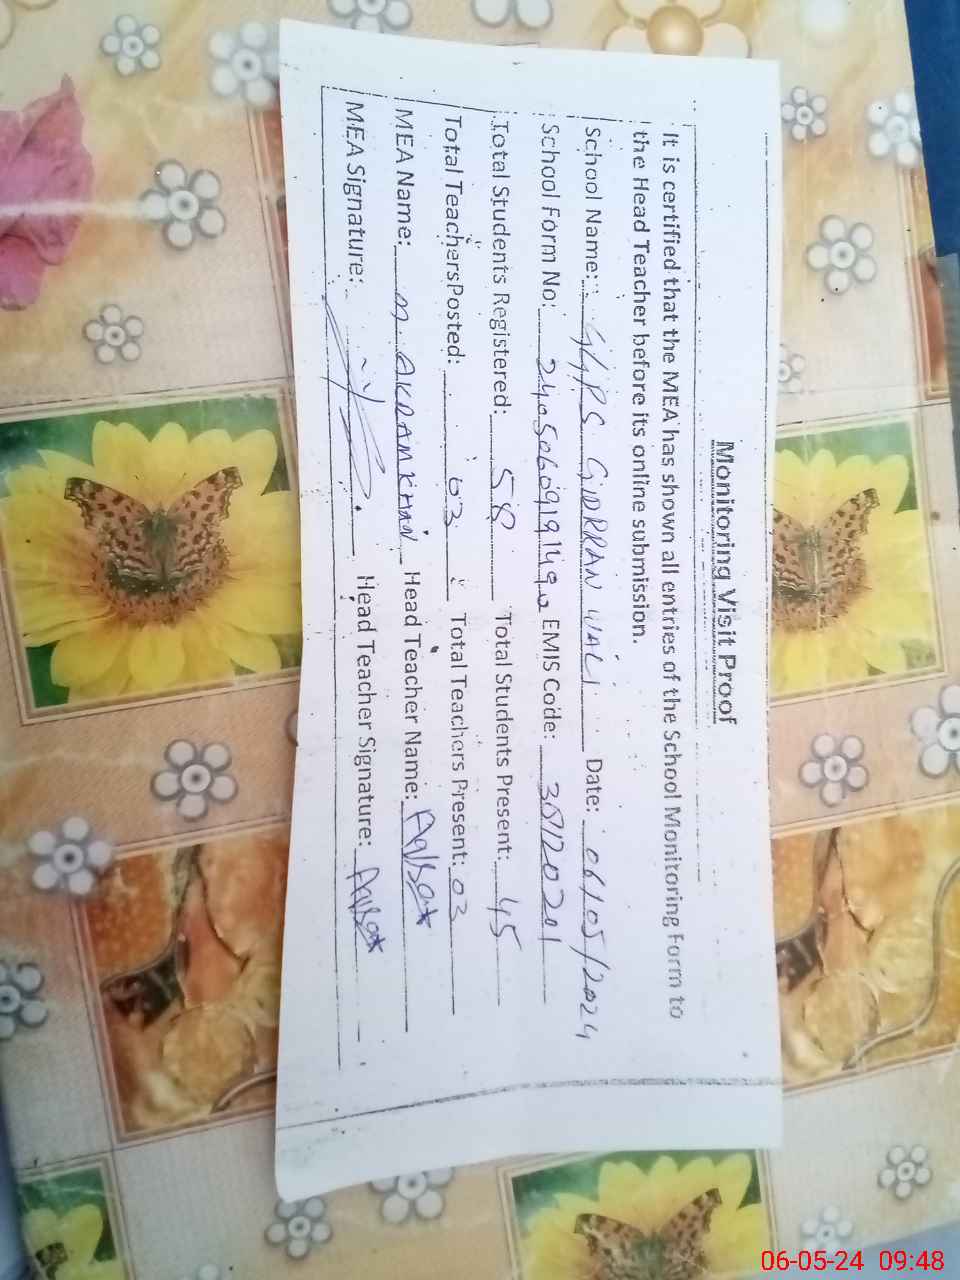 Monitoring Visit Proof
It is certified that the MEA has shown all entries of the School Monitoring Form to
the Head Teacher before its online submission.
School Name: GGPS GIDRRAN WALI Date: 06/05/2024
School Form No: EMIS Code: 38120201
Total Students Registered: 58 Total Students Present: 45
Total Teachers Posted: 03 Total Teachers Present: 03
MEA Name: M AKRAM KHAN Head Teacher Name:
MEA Signature: Head Teacher Signature:
06-05-24 09:48